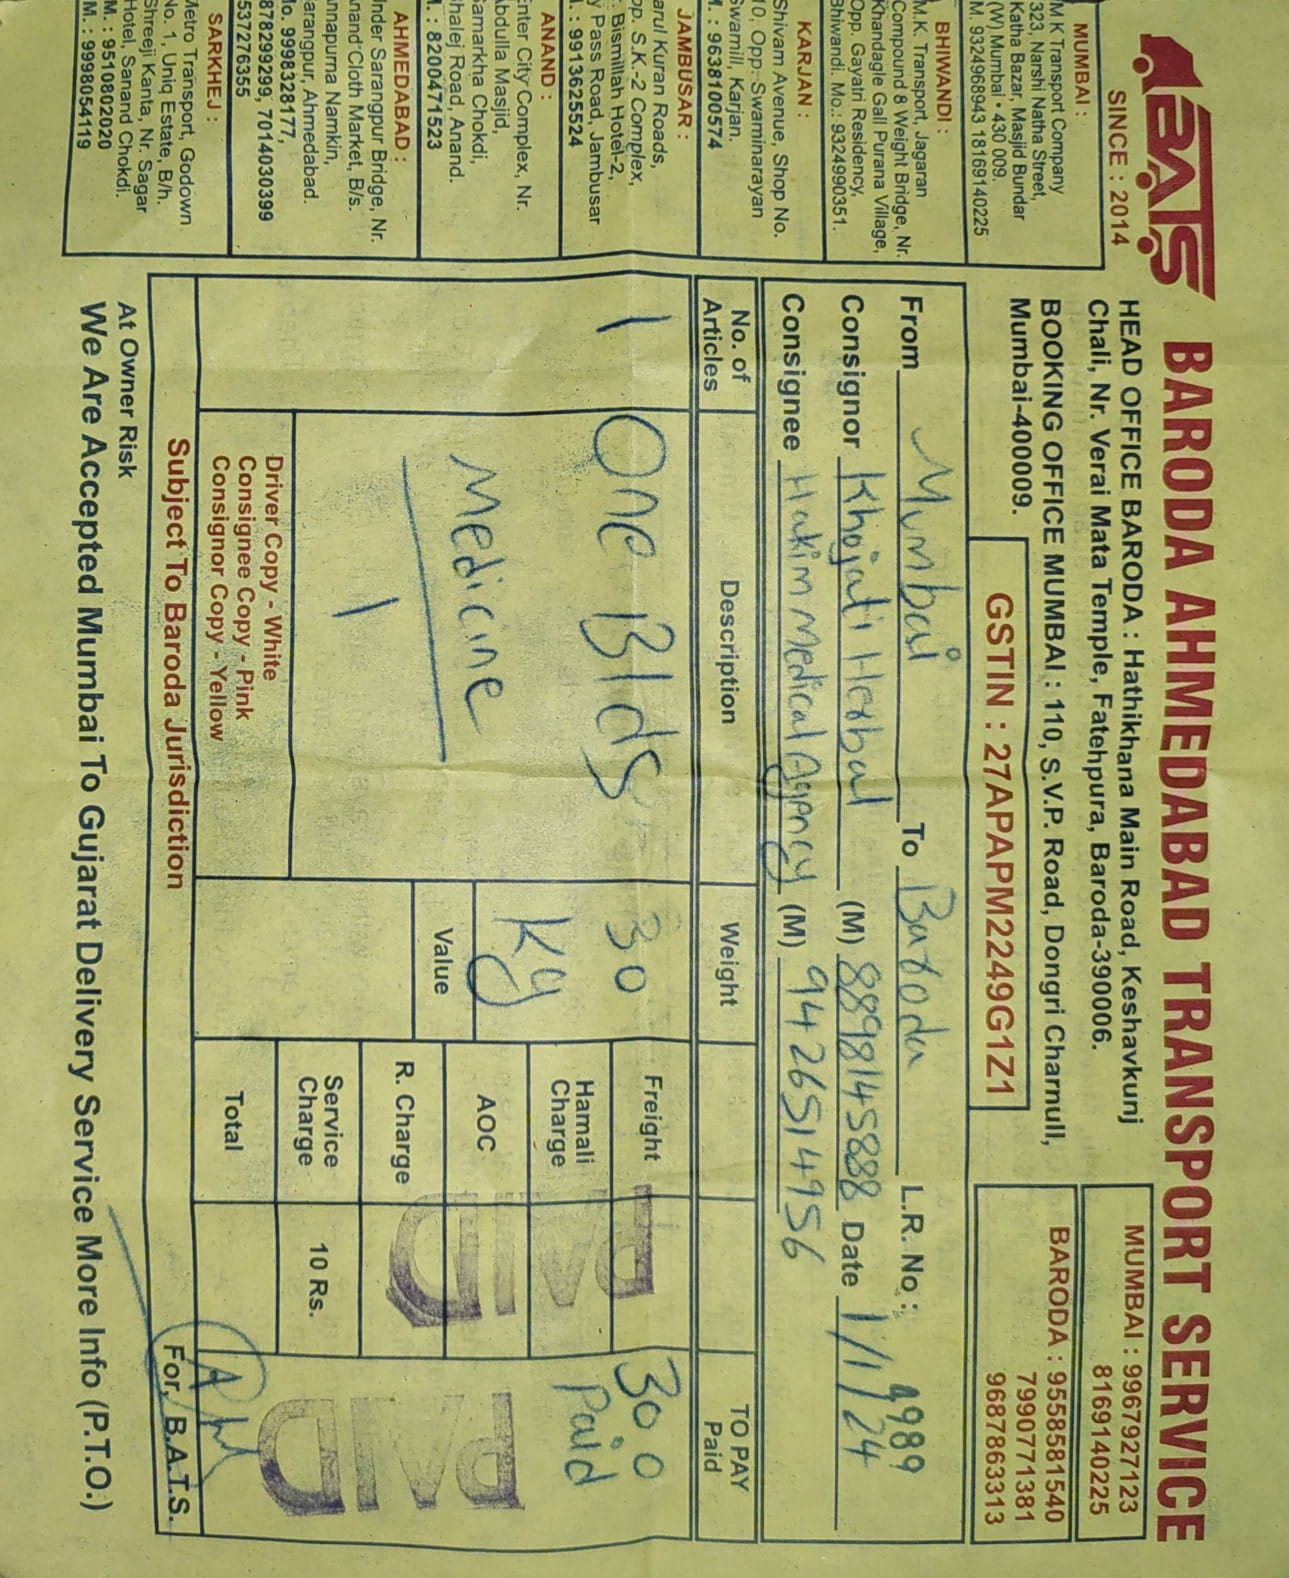 BATS
SINCE : 2014
BARODA AHMEDABAD TRANSPORT SERVICE
HEAD OFFICE BARODA : Hathikhana Main Road, Keshavkunj
Chali, Nr. Verai Mata Temple, Fatehpura, Baroda-390006.
BOOKING OFFICE MUMBAI : 110, S.V.P. Road, Dongri Charnull,
Mumbai-400009.
GSTIN : 27APAPM2249G1Z1
MUMBAI : 9967927123
8169140225
BARODA : 9558581540
7990771381
9687863313
MUMBAI :
M.K Transport Company
323, Narshi Natha Street,
Katha Bazar, Masjid Bundar
(W) Mumbai • 430 009.
M. 9324968943 18169140225
BHIWANDI :
M.K. Transport, Jagaran
Compound 8 Weight Bridge, Nr.
Khandagle Gall Purana Village,
Opp. Gayatri Residency,
Bhiwandi. Mo.: 9324990351.
KARJAN :
Shivam Avenue, Shop No.
10, Opp. Swaminarayan
Swamill, Karjan.
M. : 9638100574
JAMBUSAR :
arul Kuran Roads,
pp. S.K.-2 Complex,
Bismillah Hotel-2,
y Pass Road, Jambusar
: 9913625524
ANAND :
nter City Complex, Nr.
Abdulla Masjid,
Samarkha Chokdi,
halej Road, Anand.
. : 8200471523
AHMEDABAD :
Under Sarangpur Bridge, Nr.
Anand Cloth Market, B/s.
nnapurna Namkin,
arangpur, Ahmedabad.
Mo. 9998328177,
8787829929, 7014030399
537276355
SARKHEJ :
Metro Transport, Godown
No. 1, Uniq Estate, B/h.
Shreeji Kanta, Nr. Sagar
Hotel, Sanand Chokdi.
M. : 9510802020
M. : 9998054119
From Mumbai To Baroda L.R. No.: 9989
Consignor Khojati Herbal (M) 8898145888 Date 1/1/24
Consignee Hakim Medical Agency (M) 9426514956
No. of Articles Description Weight TO PAY Paid
1 One Blds 30 Kg Freight 300
Medicine Hamali Charge Paid
1 Value AOC
R. Charge
Service Charge 10 Rs.
Total
PAID
PAID
Driver Copy - White
Consignee Copy - Pink
Consignor Copy - Yellow
Subject To Baroda Jurisdiction For, B.A.T.S.
At Owner Risk
We Are Accepted Mumbai To Gujarat Delivery Service More Info (P.T.O.)